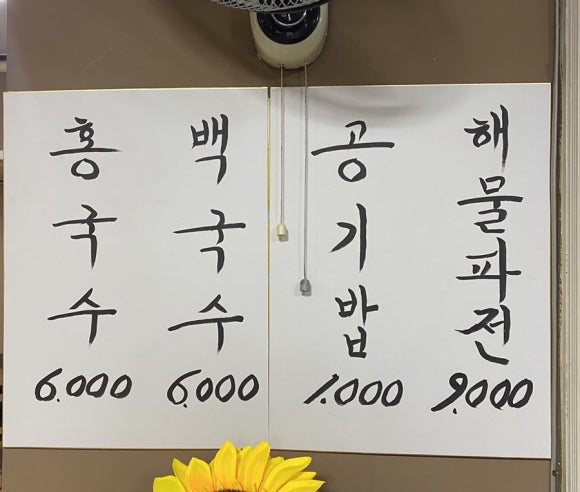 홍국수
6.000
백국수
6.000
공기밥
1.000
해물파전
9.000